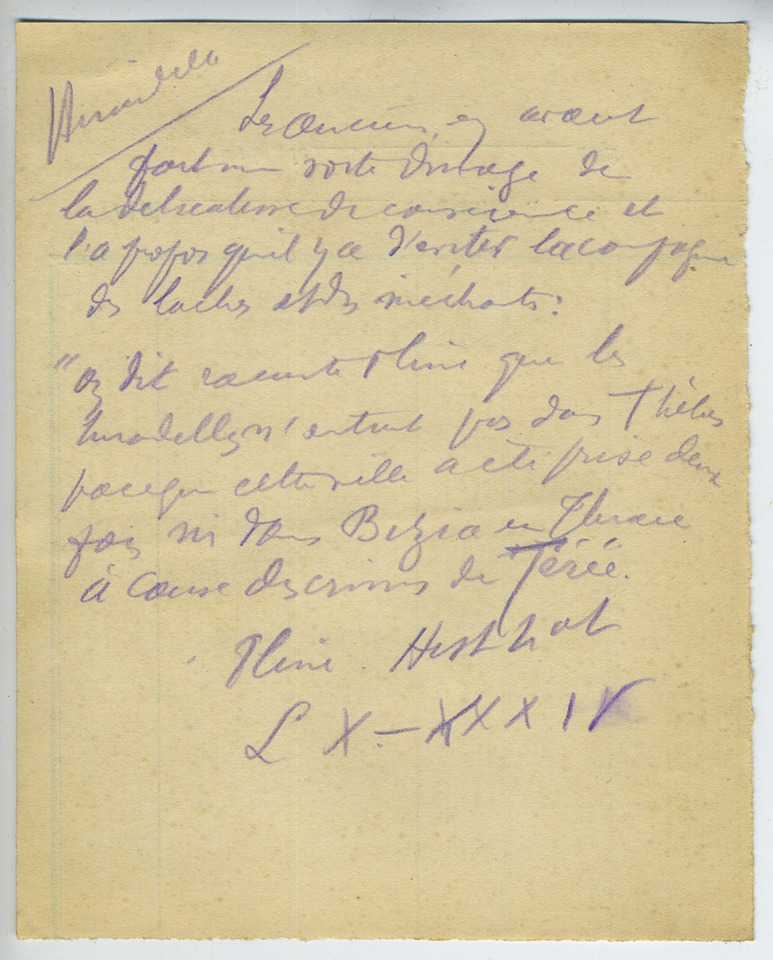 Hirondelle
Les anciens en avaient
fait une sorte d'image de
la délicatesse de conscience et
l'à propos qu'il y a d'éviter la compagnie
des laches et des méchants :
"on dit raconte Pline que les
hirondelles n'entrent pas dans Thèbes
parceque cette ville a été prise deux
fois ni dans Bizia en Thrace
à cause des crimes de Térée.
Pline. Hist Nat
L X. – XXXIV